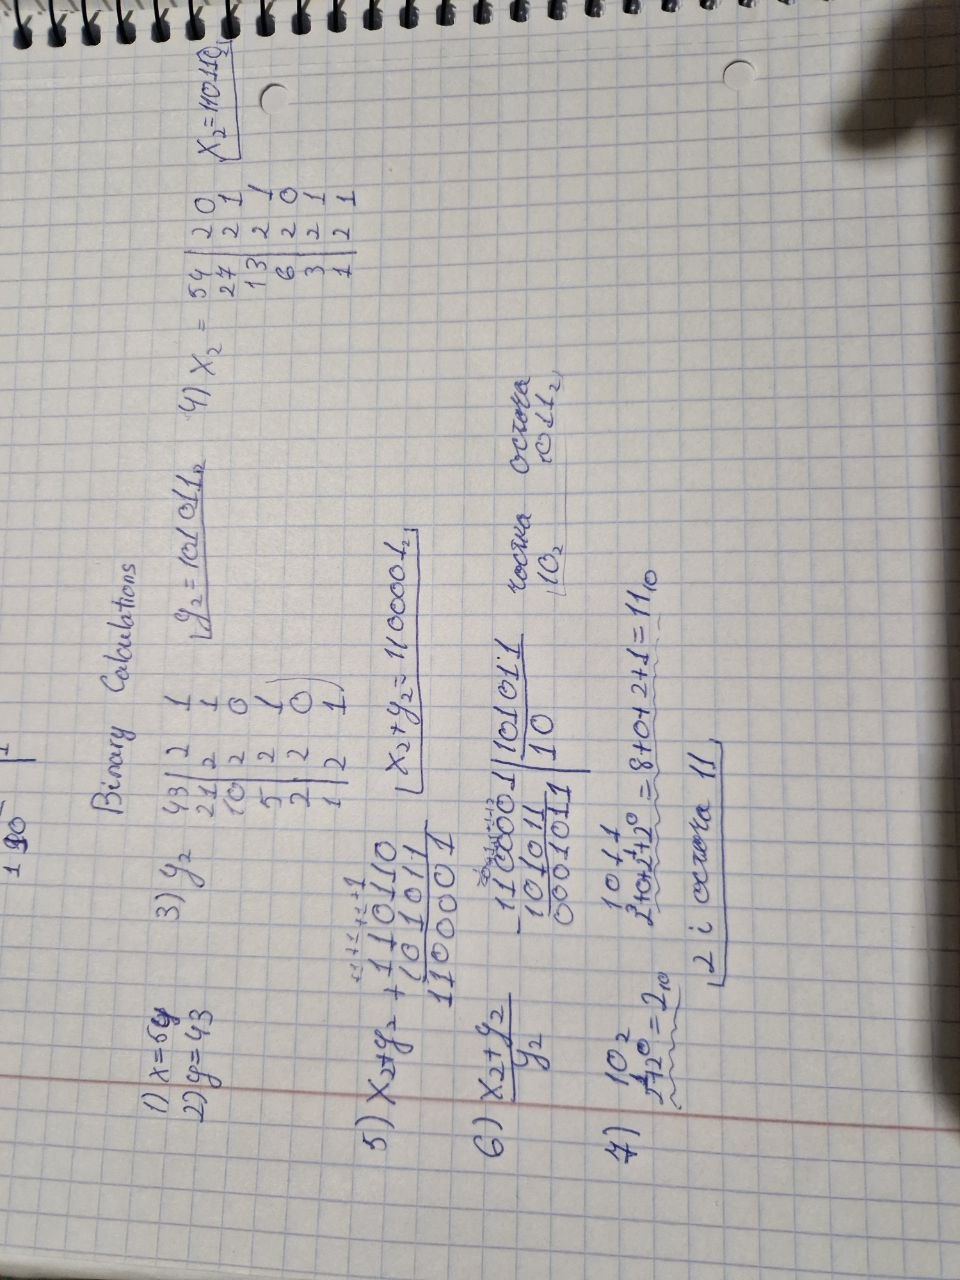 1 10
Binary Calculations
1) x=54
2) y=43
3) y₂
43 | 2 1
21 | 2 1
10 2 0
5 2 1
2 2 0
1 | 2 1
y₂=101011₂
4) x₂ =
54 | 2 0
27 2 1
13 2 1
6 2 0
3 2 1
1 2 1
x₂=110110₂
5) x₂+y₂
+110110
101011
1100001
x₂+y₂=1100001₂
6) x₂+y₂
y₂
-1100001 | 101011
101011 | 10
0001011
частка остача
10₂ 1011₂
7) 10₂
2¹+2⁰=2₁₀
1011
2³+0+2¹+2⁰=8+0+2+1=11₁₀
2 і остача 11